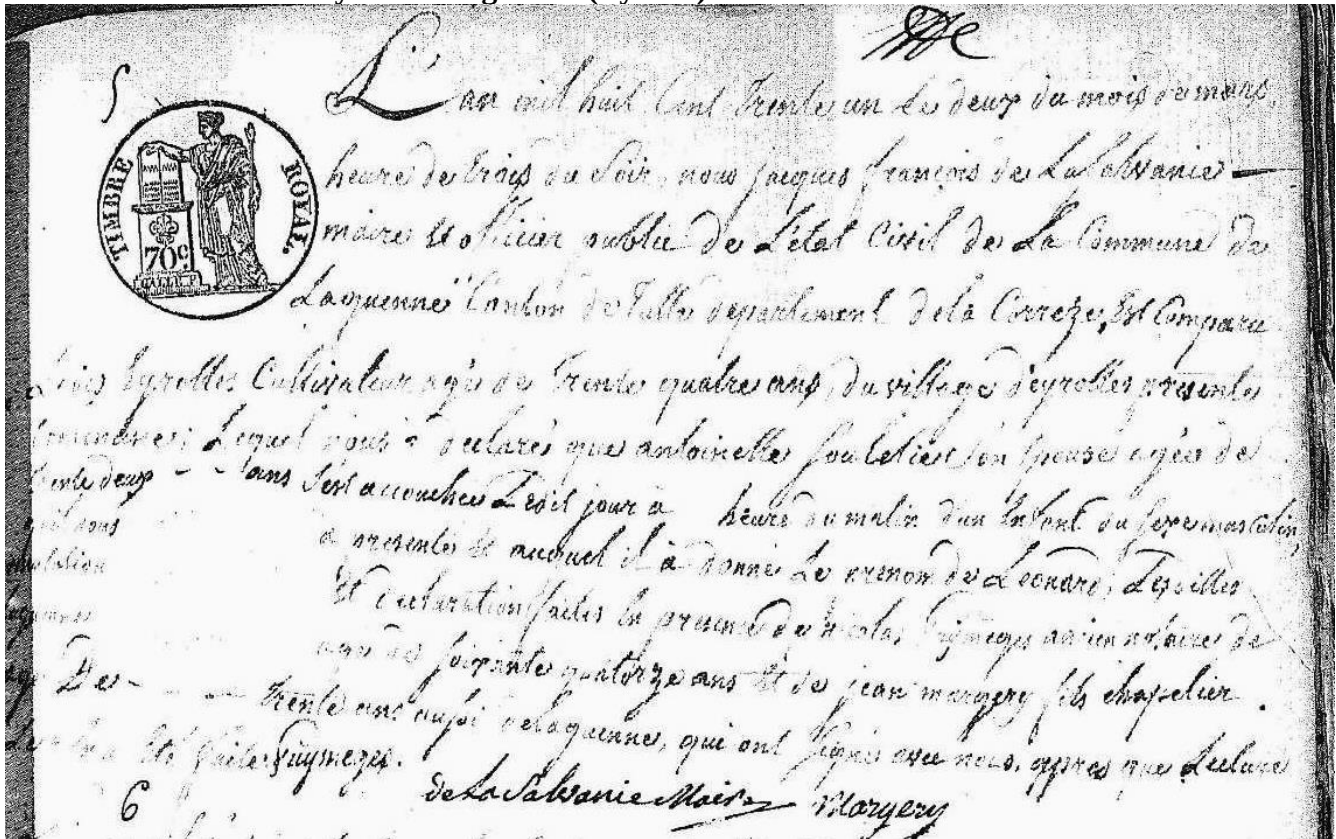 5
TIMBRE ROYAL.
70c
L'an mil huit Cent Trente un Le deux du mois de mars,
heure de trois du Soir, nous jacques françois de LaSalvanie
maire et officier public de L'état Civil de La Commune de
Laguenne Canton de Tulle departement de la Correze, Est Comparu
Eyrolles Cultivateur agé de Trente quatre ans, du village d'eyrolles presente
Commune; Lequel nous a declaré que antoinette Souletie Son épouse agée de
trente deux - - ans S'est accouchée Ledit jour à heure du matin d'un Enfant du Sexe masculin,
a presenté et auquel il à donné Le prenom de Léonard; Lesdittes
Et declaration faites En presence de nicolas Puymeges ancien notaire de
agé de Soixante quatorze ans Et de jean margery fils chapelier
De - - - Trente ans aussi delaguenne, qui ont Signé avec nous, appres que Lecture
été faite. Puymeges.
de La Salvanie Maire Margery
6